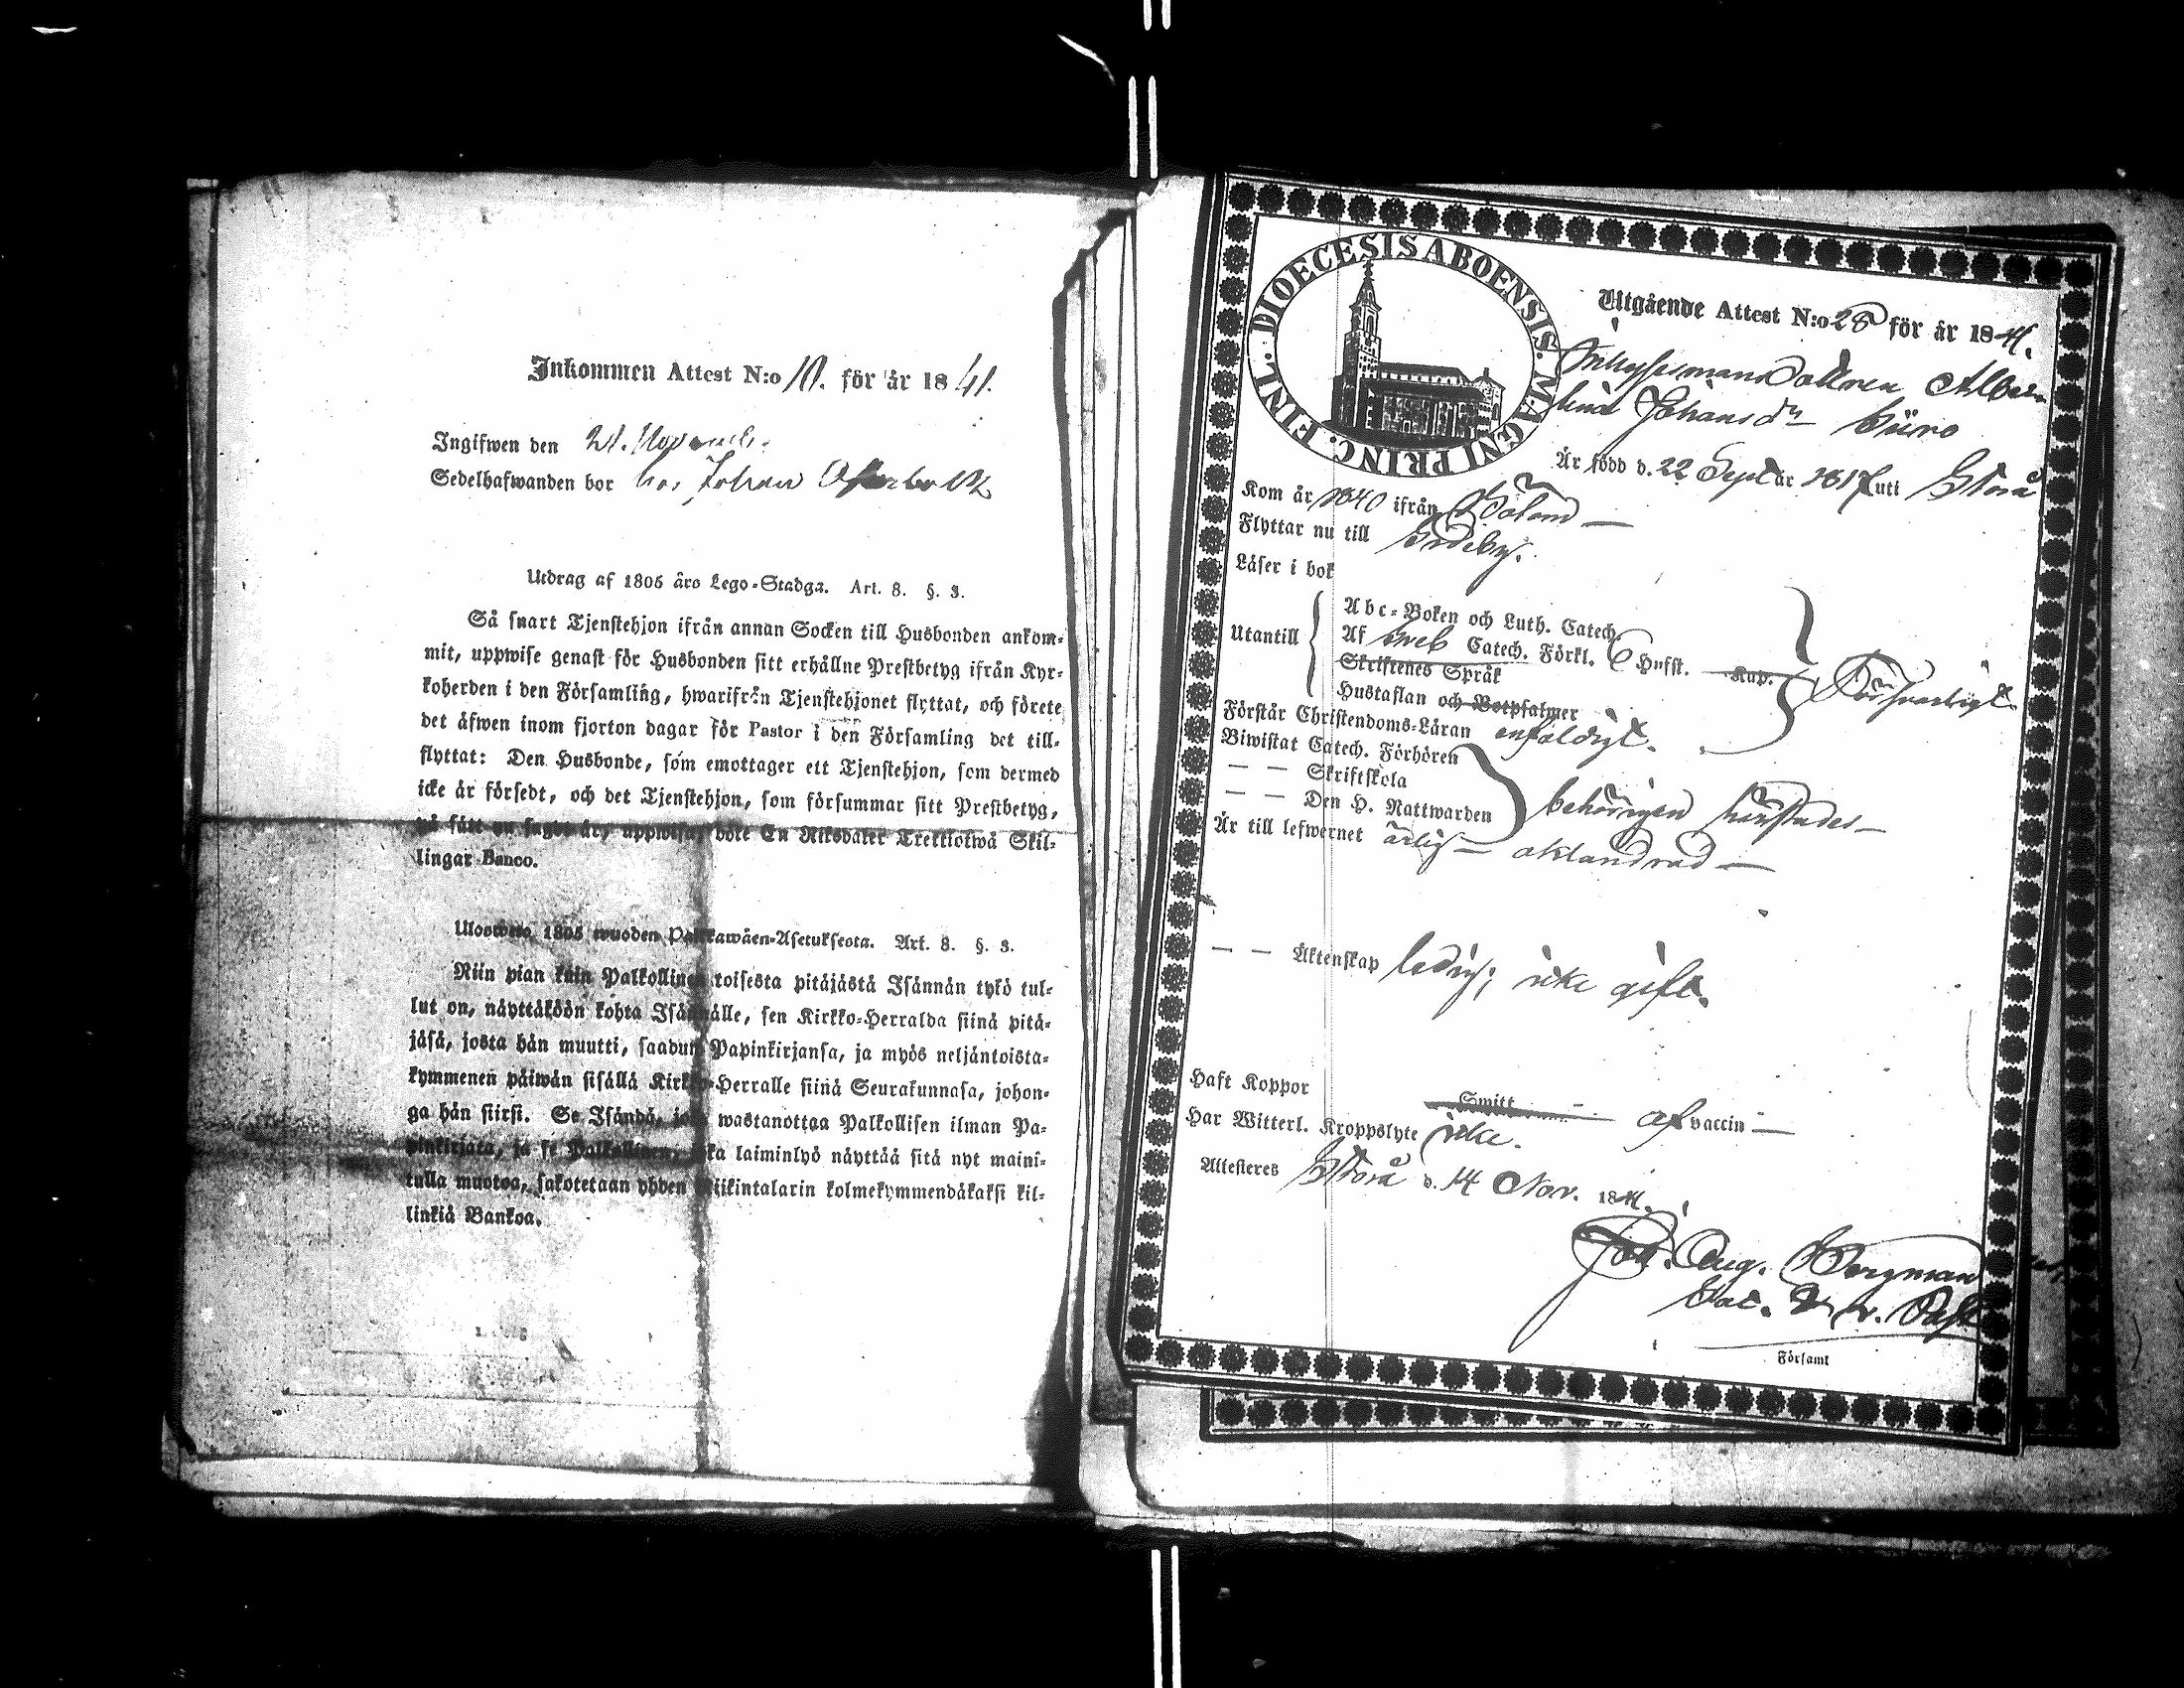 Inkommen Attest N:o 10. för år 1841.
Ingifwen den 21. Novemb.
Sedelhafwanden bor hos Johan
Utdrag af 1805 års Lego-Stadga. Art. 8. §. 3.
Så snart Tjenstehjon ifrån annan Socken till Husbonden ankom-
mit, uppwise genast för Husbonden sitt erhållne Prestbetyg ifrån Kyr-
koherden i den Församling, hwarifrån Tjenstehjonet flyttat, och förete
det äfwen inom fjorton dagar för Pastor i den Församling det till-
flyttat: Den Husbonde, som emottager ett Tjenstehjon, som dermed
icke är försedt, och det Tjenstehjon, som försummar sitt Prestbetyg,
på sätt nu sagdt är, uppwisa, böte En Riksdaler Trettiotwå Skil-
lingar Banco.
Ulosweto 1805 wuoden Palkkawäen-Asetuksesta. Art. 8. §. 3.
Niin pian kuin Palkollinen toisesta pitäjästä Isännän tykö tul-
lut on, näyttäköön kohta Isännälle, sen Kirkko-Herralda siinä pitä-
jäsä, josta hän muutti, saadun Papinkirjansa, ja myös neljäntoista-
kymmenen päiwän sisällä Kirkko-Herralle siinä Seurakunnasa, johon-
ga hän siirsi. Se Isändä, joka wastanottaa Palkollisen ilman Pa-
pinkirjata, ja se Palkollinen, joka laiminlyö näyttää sitä nyt maini-
tulla muotoa, sakotetaan yhden Riikintalarin kolmekymmendäkaksi kil-
linkiä Bankoa.
DIOECESIS ABOENSIS. MAGNI PRINC. FINL.
Utgående Attest N:o 28 för år 1841.
Inhysesmans Dottren Alber-
tina Johansdr
Är född d. 22 Sept år 1817 uti Storå
Kom år 1840 ifrån
Flyttar nu till
Läser i bok
Utantill
Abc-Boken och Luth. Catech.
Af Sveb Catech. Förkl. 6 Hufst. Kap.
Skriftenes Språk
Hustaflan och Botpsalmer
Försvarligt
Förstår Christendoms-Läran enfaldigt.
Biwistat Catech. Förhören
— — Skriftskola
— — Den H. Nattwarden
behörigen
Är till lefwernet ärlig — oklandrad —
— — Äktenskap ledig; icke gift.
Haft Koppor Smitt af vaccin —
Har Witterl. Kroppslyte icke.
Attesteres Storå d. 14 Nov. 1841.
Joh. Aug. Bergman
Sac. V. v. Past
Församl